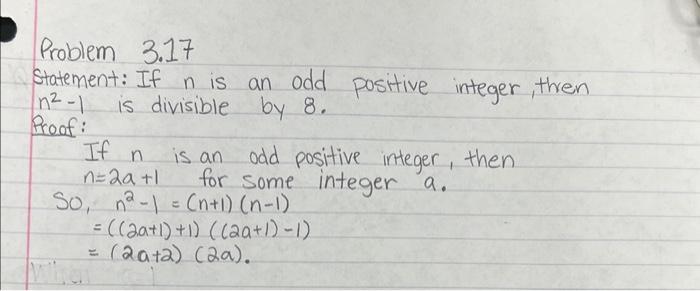 Problem 3.17
Statement: If n is an odd positive integer, then
n²-1 is divisible by 8.
Proof:
If n is an odd positive integer, then
n=2a+1 for some integer a.
So, n²-1 = (n+1)(n-1)
= ((2a+1)+1) ((2a+1)-1)
= (2a+2) (2a).